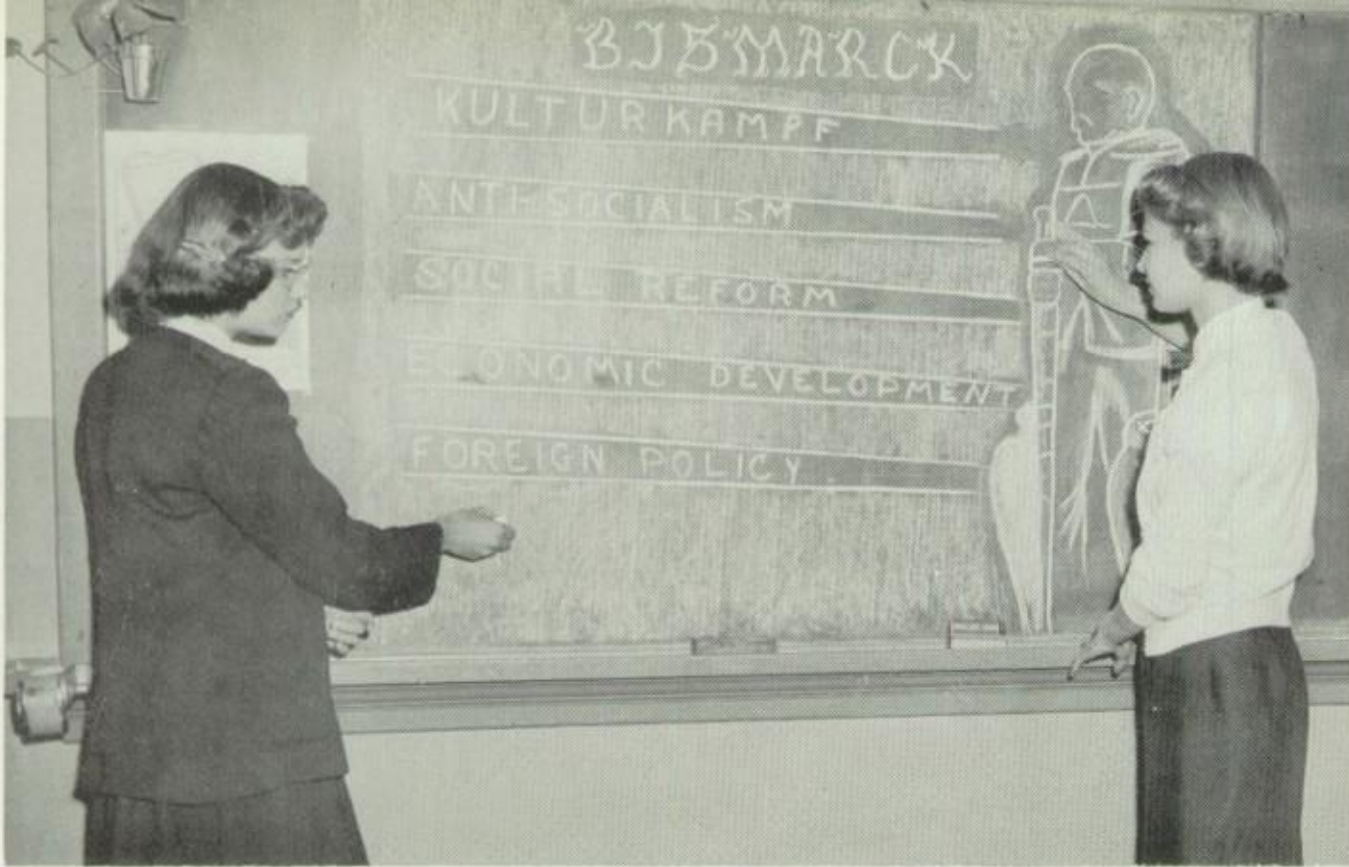 BISMARCK
KULTURKAMPF
ANTI-SOCIALISM
SOCIAL REFORM
ECONOMIC DEVELOPMENT
FOREIGN POLICY